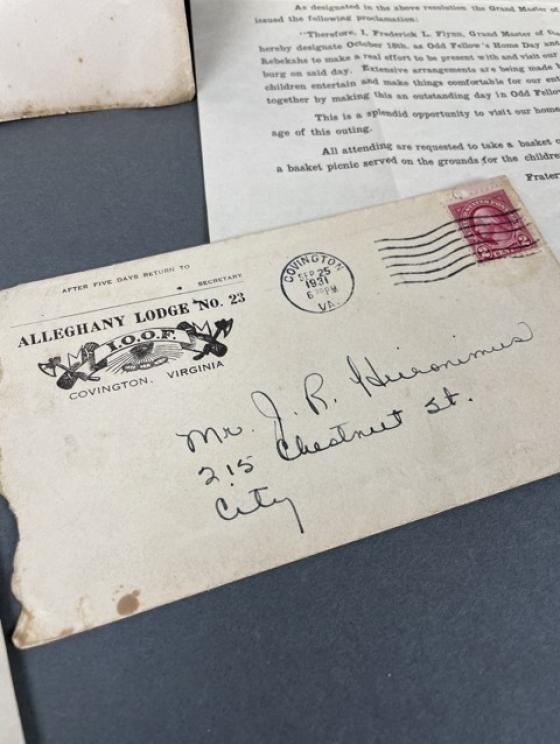 As designated in the above resolution the Grand Master of
issued the following proclamation:
"Therefore, I, Frederick L. Flynn, Grand Master of the
hereby designate October 18th, as Odd Fellow's Home Day and
Rebekahs to make a real effort to be present with and visit our
burg on said day. Extensive arrangements are being made
children entertain and make things comfortable for our
together by making this an outstanding day in Odd Fellow
This is a splendid opportunity to visit our home
age of this outing.
All attending are requested to take a basket
a basket picnic served on the grounds for the children
Frater
AFTER FIVE DAYS RETURN TO
SECRETARY
ALLEGHANY LODGE No. 23
I.O.O.F.
COVINGTON, VIRGINIA
COVINGTON
SEP 25
1931
6 PM
VA.
2 CENTS 2
Mr. J. R. Hieronimus
215 Chestnut St.
City